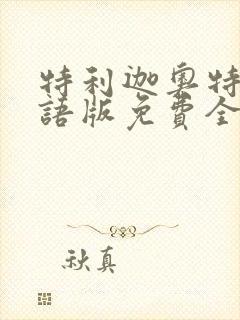 特利迦奧特
語版免費全
秋真